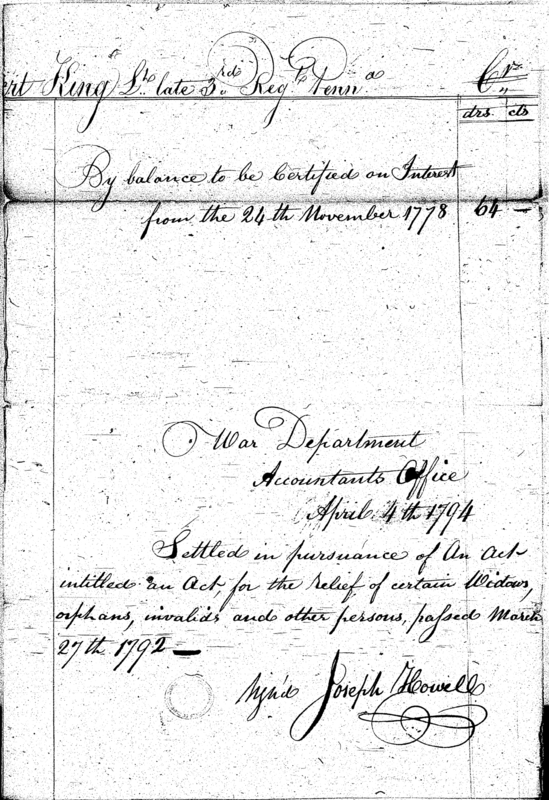 ert King Lt. late 3rd Regt. Penna Cr.
drs. cts
By balance to be Certified on Interest
from the 24th November 1778 64 —
War Department
Accountants Office
April 4th 1794
Settled in pursuance of An Act
intitled an Act, for the relief of certain Widows,
orphans, invalids and other persons, passed March
27th 1792 —
Sign'd Joseph Howell